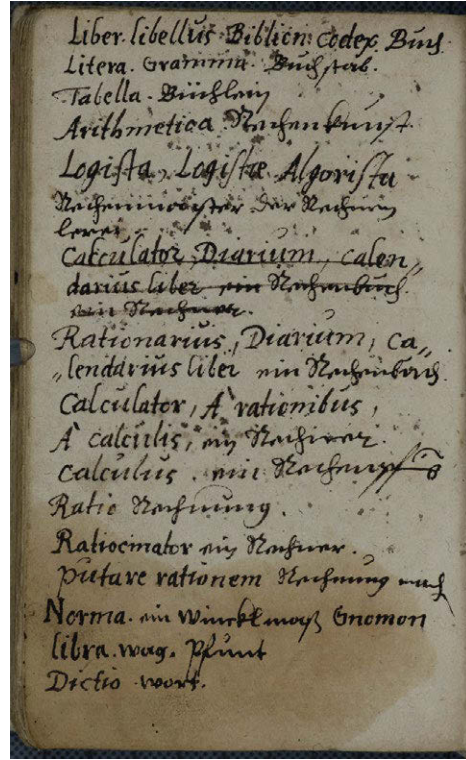 Liber. libellus. Biblion. Codex. Buch
Litera. Gramma. Buchstab.
Tabella. Büchlein
Arithmetica Rechenkunst.
Logista, Logistæ Algorista
Rechenmeister der Rechnen
lerer
Calculator, Diarium, calen„
darius liber ein Rechenbuch
ein Rechner.
Rationarius, Diarium, Ca„
„lendarius liber ein Rechenbuch
Calculator, A rationibus,
A calculis, ein Rechner.
Calculus. ein Rechenpfenig
Ratio Rechnung.
Ratiocinator ein Rechner.
Putare rationem Rechnung
Norma. ein Winckelmaß Gnomon
libra. wag. Pfunt
Dictio wort.